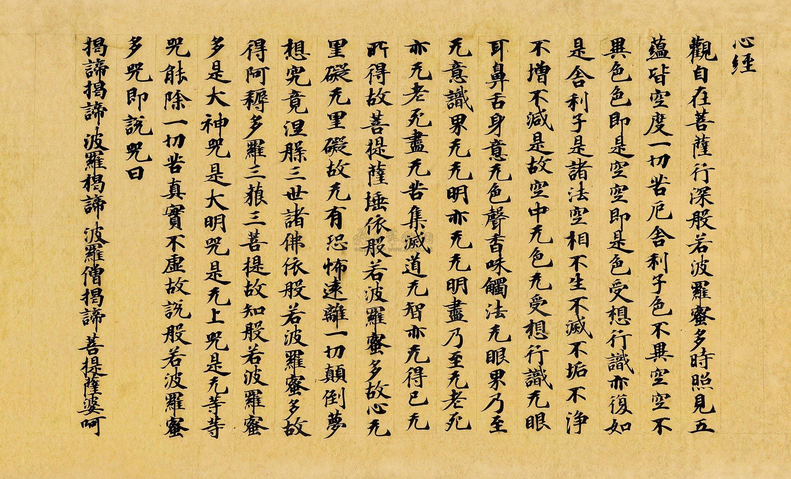 心經
觀自在菩薩行深般若波羅蜜多時照見五
蘊皆空度一切苦厄舍利子色不異空空不
異色色即是空空即是色受想行識亦復如
是舍利子是諸法空相不生不滅不垢不淨
不增不減是故空中无色无受想行識无眼
耳鼻舌身意无色聲香味觸法无眼界乃至
无意識界无无明亦无无明盡乃至无老死
亦无老死盡无苦集滅道无智亦无得已无
所得故菩提薩埵依般若波羅蜜多故心无
里礙无里礙故无有恐怖遠離一切顛倒夢
想究竟涅槃三世諸佛依般若波羅蜜多故
得阿耨多羅三藐三菩提故知般若波羅蜜
多是大神咒是大明咒是无上咒是无等等
咒能除一切苦真實不虛故說般若波羅蜜
多咒即說咒曰
揭諦揭諦 波羅揭諦 波羅僧揭諦 菩提薩婆呵